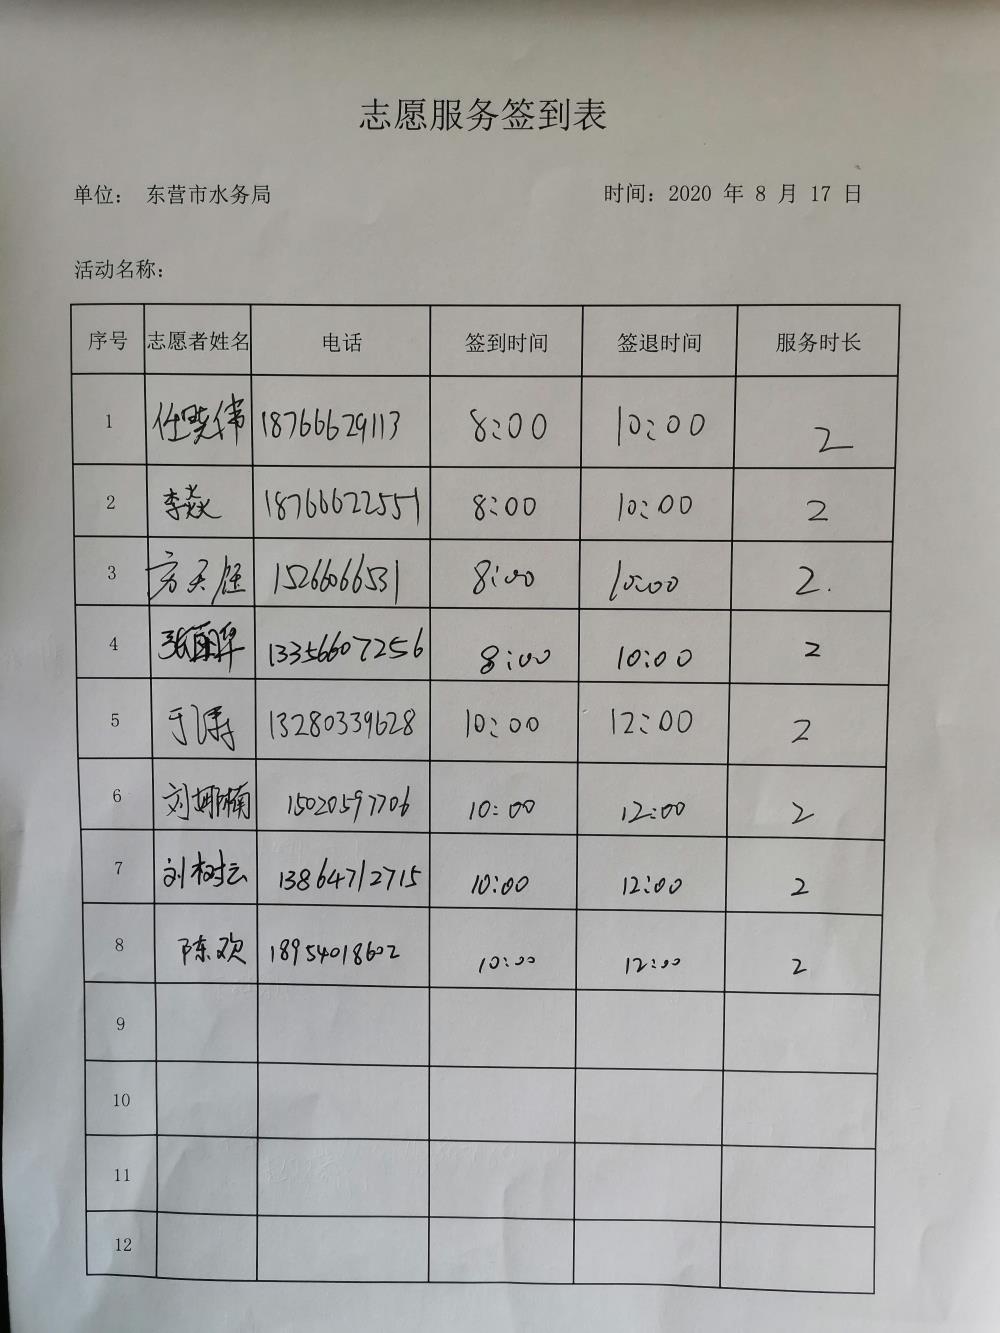 志愿服务签到表
单位： 东营市水务局 时间：2020 年 8 月 17 日
活动名称：
序号 志愿者姓名 电话 签到时间 签退时间 服务时长
1 任晓伟 18766629113 8:00 10:00 2
2 李焱 18766622551 8:00 10:00 2
3 方天 15266066531 8:00 10:00 2.
4 13356607256 8:00 10:00 2
5 于涛 13280339628 10:00 12:00 2
6 刘娜楠 15020597706 10:00 12:00 2
7 刘树云 13864712715 10:00 12:00 2
8 陈欢 18954018602 10:00 12:00 2
9
10
11
12